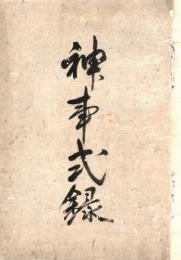 神事式録